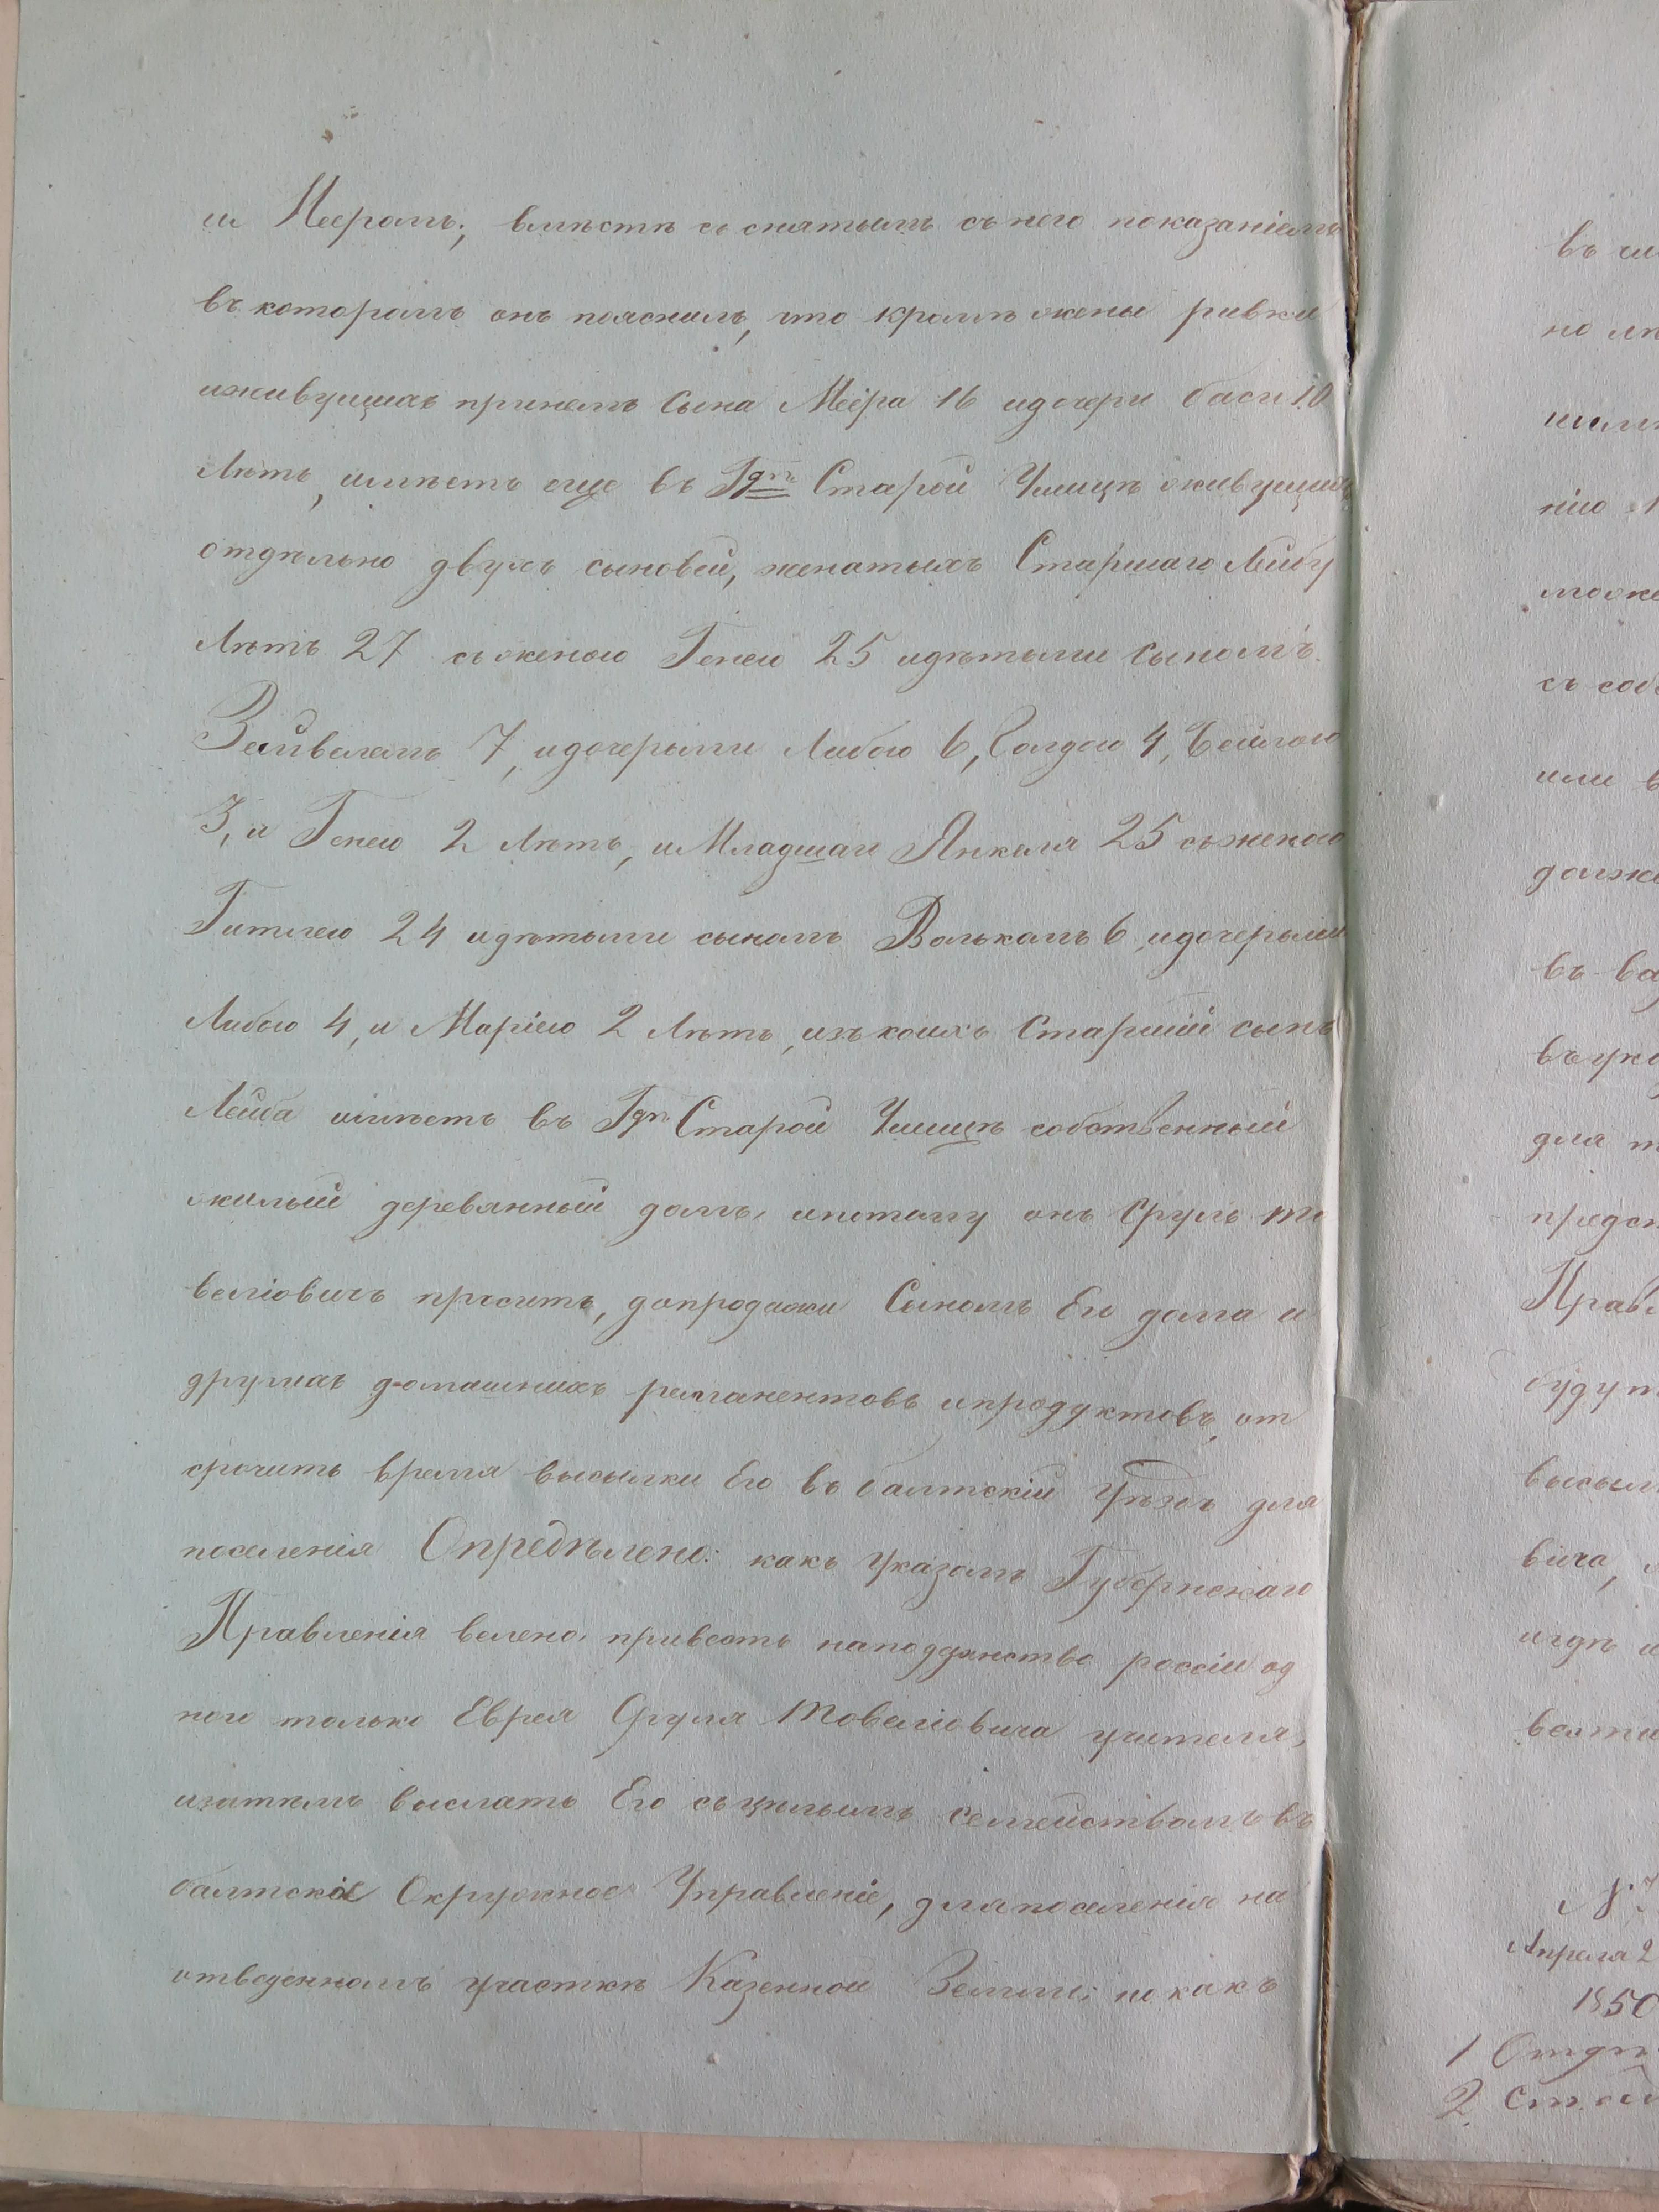 и Мееромъ; вмѣстѣ съ снятымъ съ него показаніемъ
въ которомъ онъ пояснилъ, что кромѣ жены ривки
иживущихъ принемъ Сына Меера 16 идочери баси 10
Лѣтъ, имѣетъ еще въ Гдѣ Старой Ушицѣ живущихъ
отдѣльно двухъ сыновей, женатыхъ Старшаго Лейбу
Лѣтъ 27 съженою Генею 25 идѣтьми сыномъ
Зейвелемъ 7, идочерьми Либою 6, Голдою 4, Бейлою
3, и Генею 2 Лѣтъ, и Младшаги Янкеля 25 съженою
Гитлею 24 идѣтьми сыномъ Волькомъ 6 идочерьми
Либою 4, и Маріею 2 Лѣтъ, изъ коихъ Старшій сынъ
Лейба имѣетъ въ Гдѣ Старой Ушицѣ собственный
жилый деревянный домъ, ипотому онъ Сруль То
веліовичъ проситъ, допродажи Сыномъ Его дома и
другихъ домашнихъ реманентовъ ипродуктовъ, от
срочить время высылки Его въ балтскій Уѣздъ для
поселенія Опредѣлено: какъ Указомъ Губернскаго
Правленія велено, привесть наподданство россіи од
ного только Еврея Сруля Товеліовича учителя,
изатемъ выслать Его съ цѣлымъ семействомъ въ
балтское Окружное Управленіе, дляпоселенія на
отведенномъ участкѣ Казенной Земли; и какъ
въ
но
нію
може
съ соб
или в
долж
въ ва
въ
для
предс
Прав
будут
высыл
вича,
игдѣ
Апреля 2
1850
1 Отдѣ
2 Стол